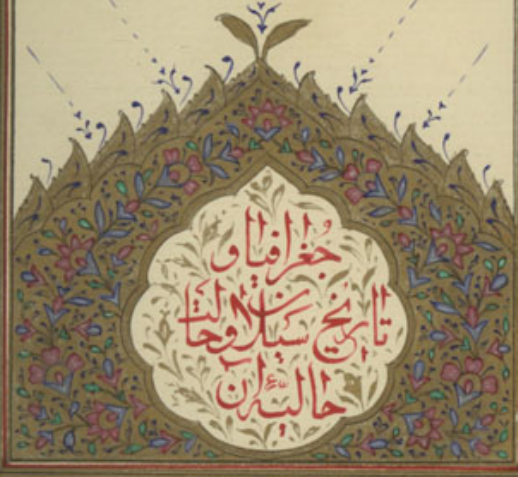 جُغرافیا و
تاریخ سَیلان و حالت
حالیّهٔ آن